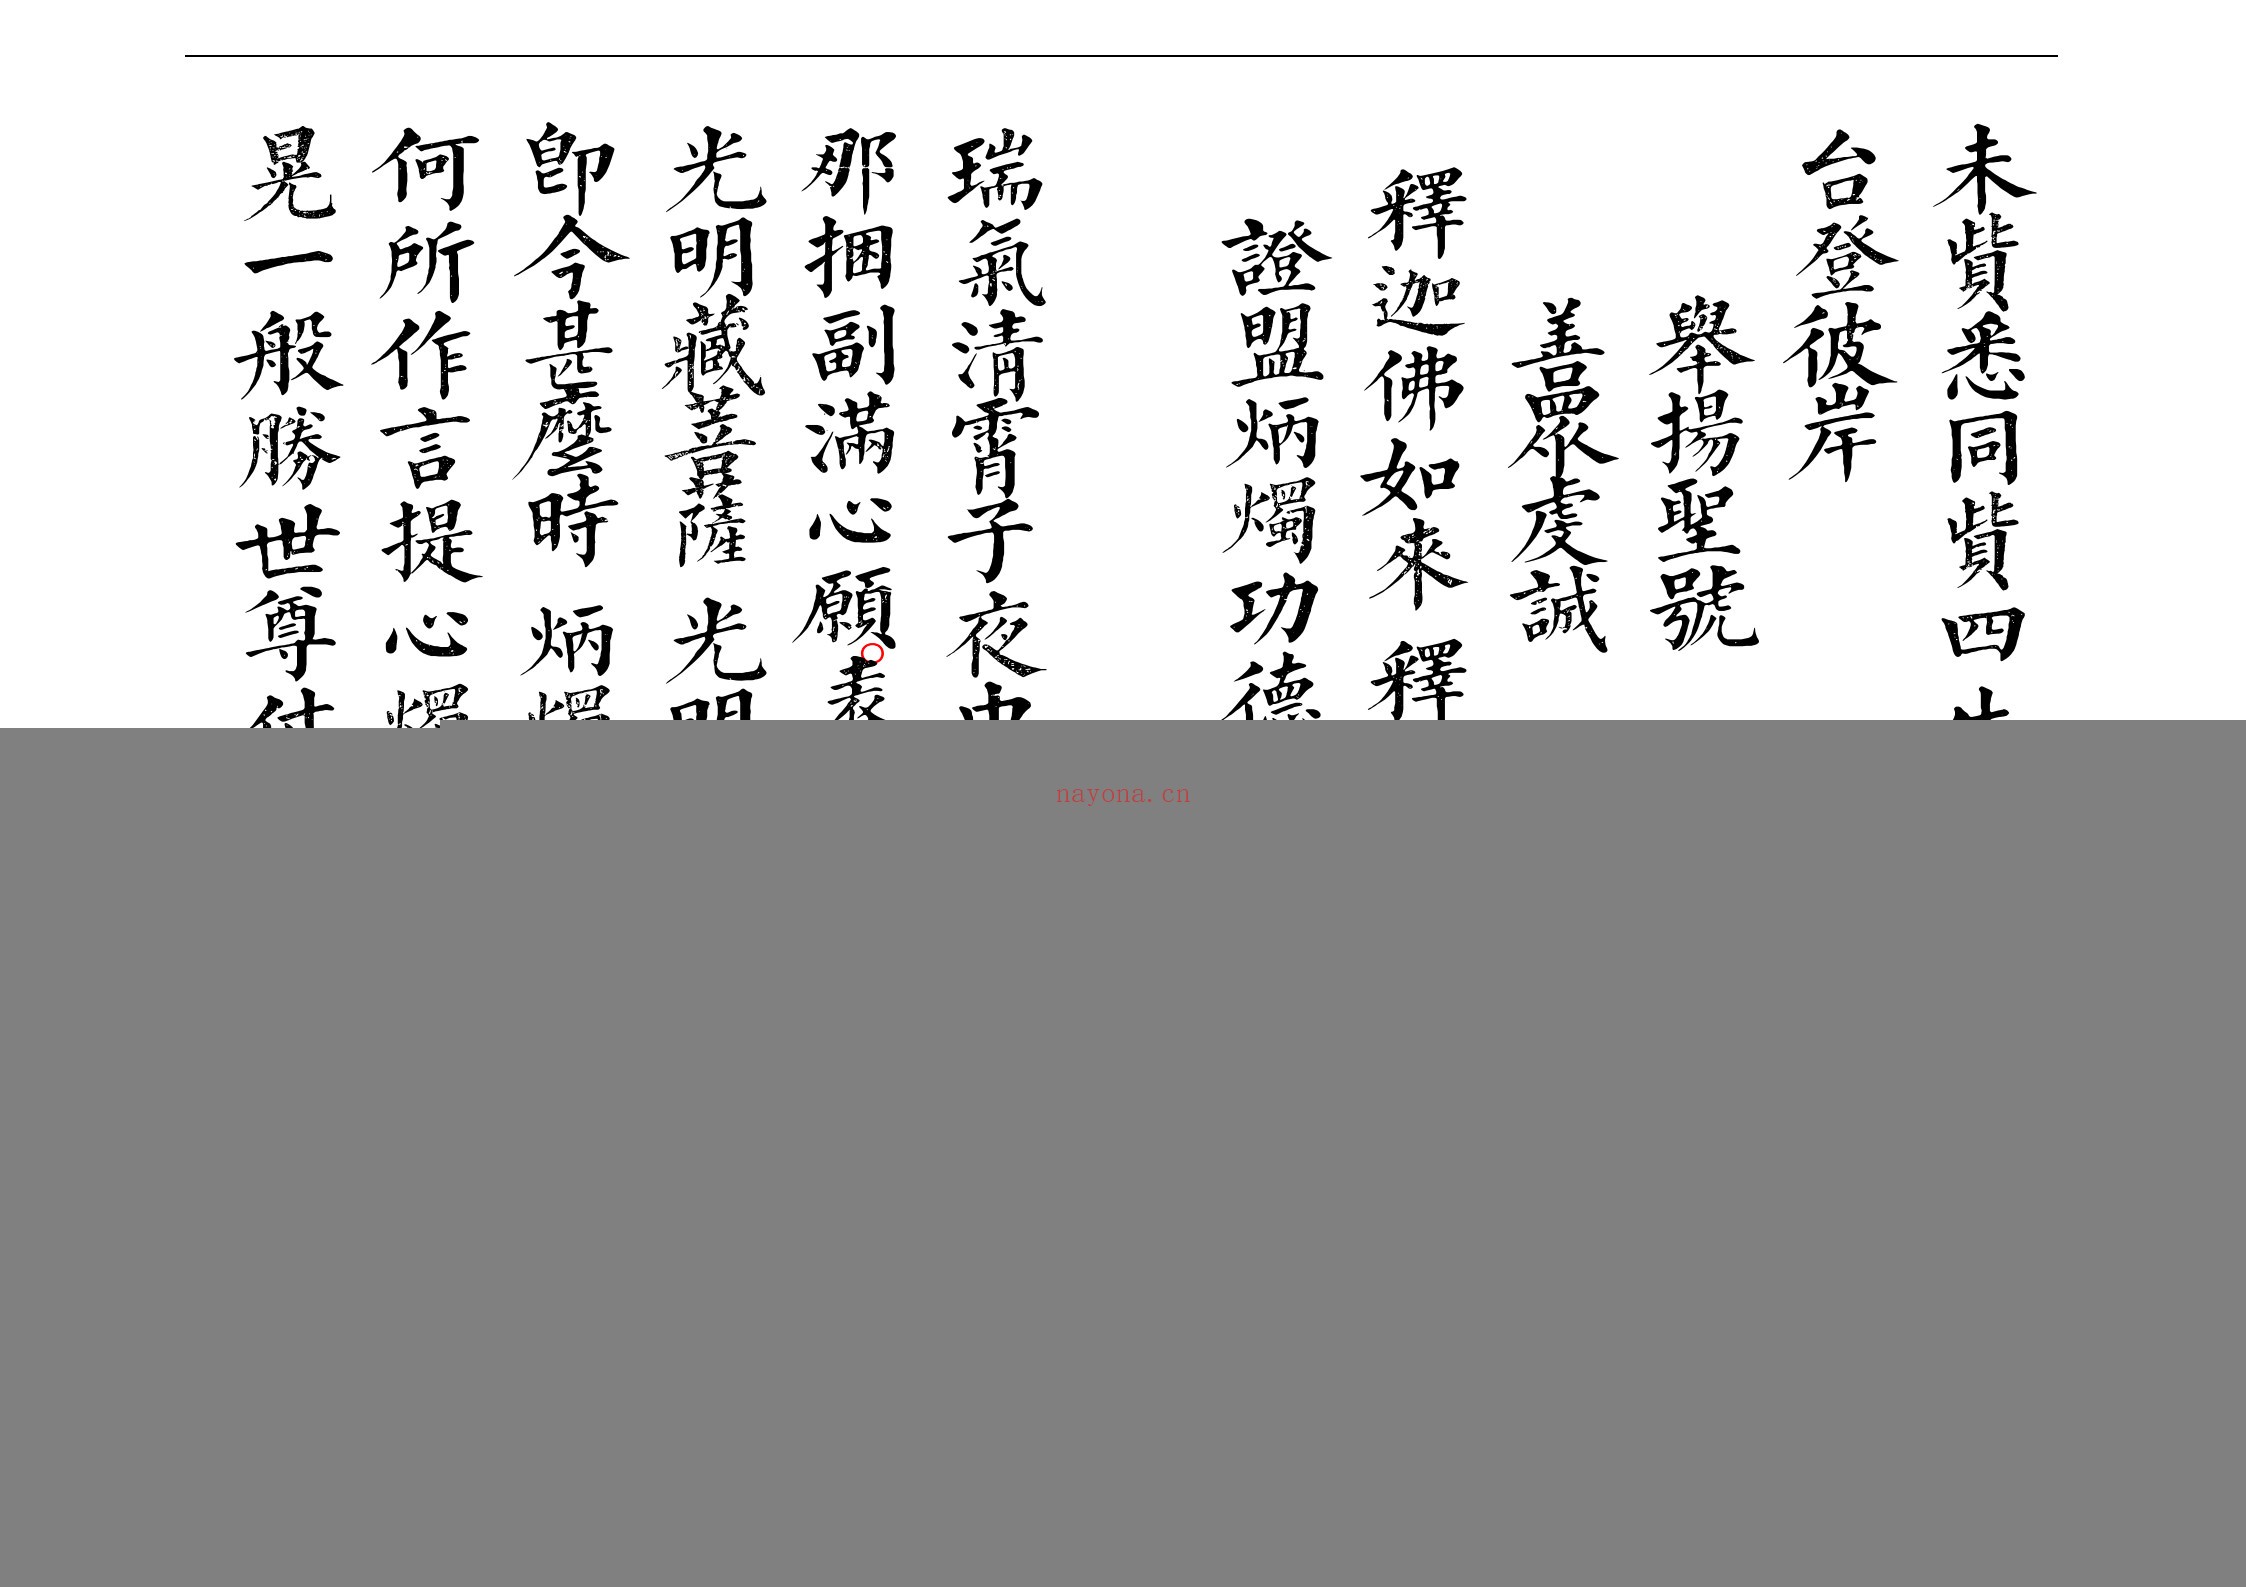 未貲悉同貲四生
台登彼岸
舉揚聖號
善眾虔誠
釋迦佛如來 釋
證盟炳燭功德
瑞氣清霄子夜中
那捆副滿心願表
光明藏菩薩 光明
卽今甚麼時 炳燭
何所作言提心燭
晃一般勝世尊付
nayona.cn